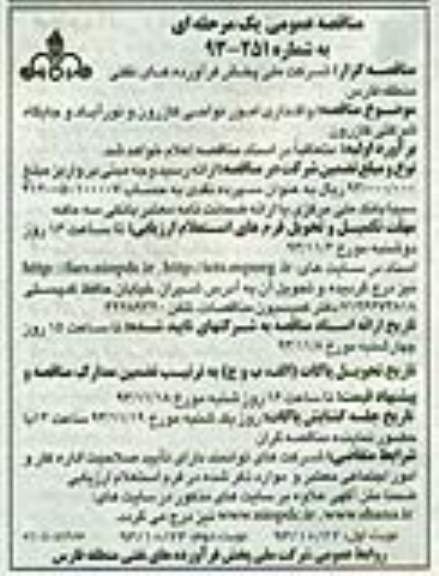 مناقصه عمومی یک مرحله ای
به شماره ۲۵۱-۹۳
مناقصه گزار: شرکت ملی پخش فرآورده های نفتی
منطقه فارس
موضوع مناقصه: واگذاری امور نواحی کازرون و نورآباد و جایگاه
شرکتی کازرون
برآورد اولیه: متعاقباً در اسناد مناقصه اعلام خواهد شد
نوع و مبلغ تضمین شرکت در مناقصه: ارائه رسید وجه مبنی بر واریز مبلغ
ریال به عنوان سپرده نقدی به حساب
بانک ملی مرکزی یا ارائه ضمانت نامه معتبر بانکی سه ماهه
مهلت تکمیل و تحویل فرم های استعلام ارزیابی: تا ساعت ۱۴ روز
دوشنبه مورخ
اسناد در سایت های http://fars.niopdc.ir , http://iets.mporg.ir
نیز درج گردیده و تحویل آن به آدرس شیراز خیابان حافظ
دفتر کمیسیون مناقصات تلفن
تاریخ ارائه اسناد مناقصه به شرکتهای تایید شده: تا ساعت ۱۵ روز
چهارشنبه مورخ
تاریخ تحویل پاکات (الف، ب و ج) به ترتیب تضمین مدارک مناقصه و
پیشنهاد قیمت: تا ساعت ۱۴ روز شنبه مورخ ۹۳/۱۱/۱۸
تاریخ جلسه گشایش پاکات: روز یک شنبه مورخ ۹۳/۱۱/۱۹ ساعت
حضور نماینده مناقصه گران
شرایط متقاضی: شرکت های توانمند دارای تأیید صلاحیت اداره کار و
امور اجتماعی معتبر و موارد ذکر شده در فرم استعلام ارزیابی
ضمنا متن آگهی علاوه بر سایت های مذکور در سایت های:
www.niopdc.ir , www.shana.ir نیز درج می گردد.
نوبت اول: ۹۳/۱۰/۲۲ نوبت دوم: ۹۳/۱۰/۲۳
روابط عمومی شرکت ملی پخش فرآورده های نفتی منطقه فارس